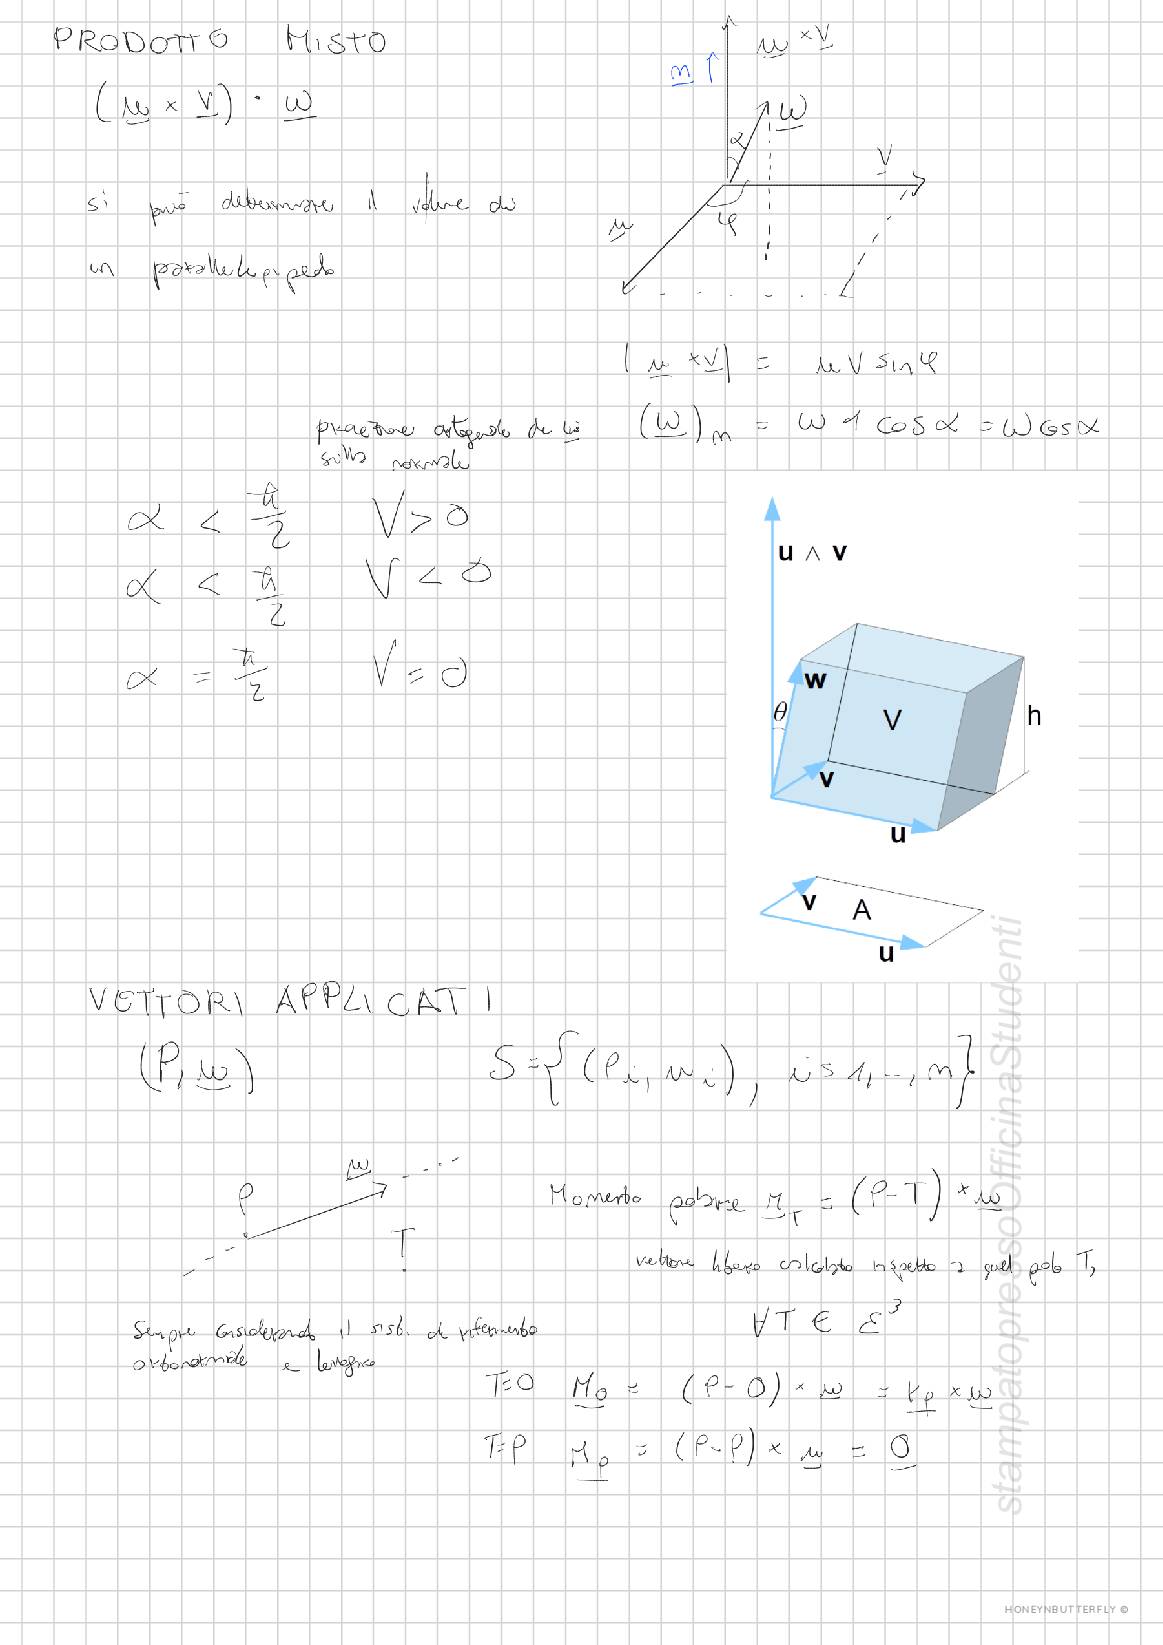 PRODOTTO MISTO
(u × v) · w
si può determinare il volume di
un parallelepipedo
n
u × v
w
α
v
φ
u
|u × v| = u v sin φ
proiezione ortogonale di w
sulla normale
(w)n = w 1 cos α = w cos α
α < π/2 V > 0
α < π/2 V < 0
α = π/2 V = 0
u ∧ v
w
θ
V
h
v
u
v
A
u
VETTORI APPLICATI
(P, u)
S = {(Pi, ui), i = 1, .., n}
P
u
T
Momento polare M_T = (P - T) × u
vettore libero calcolato rispetto a quel polo T,
∀T ∈ ε³
Sempre considerando il sist. di riferimento
ortonormale e levogiro
T=O M_O = (P - O) × u = r_P × u
T=P M_P = (P - P) × u = 0
stampatopressoOfficinaStudenti
HONEYNBUTTERFLY ©